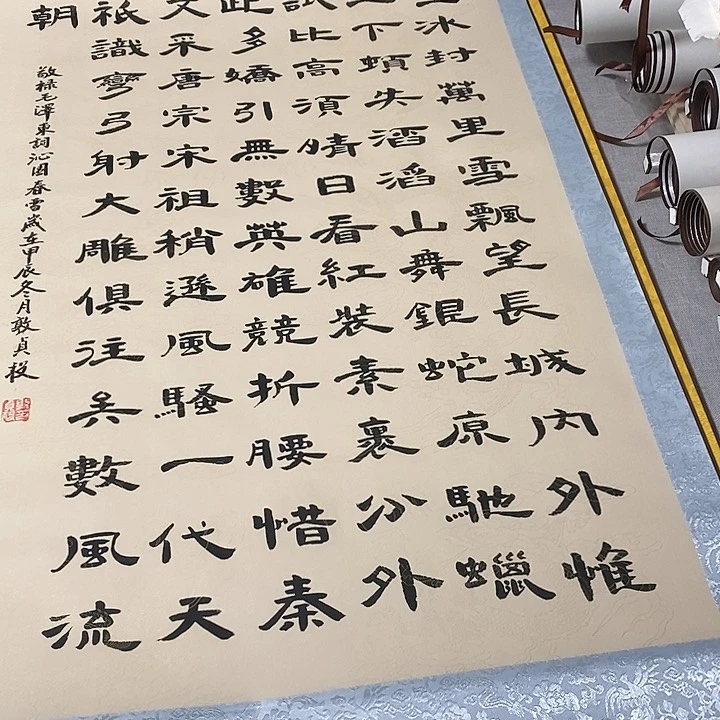 冰封萬里雪飄望長城內外惟
下頓失滔滔山舞銀蛇原馳蠟
試比高須晴日看紅裝素裹分外
此多嬌引無數英雄競折腰惜秦
文采唐宗宋祖稍遜風騷一代天
祇識彎弓射大雕俱往矣數風流
朝
敬祿毛澤東詞沁園春雪歲在甲辰冬月